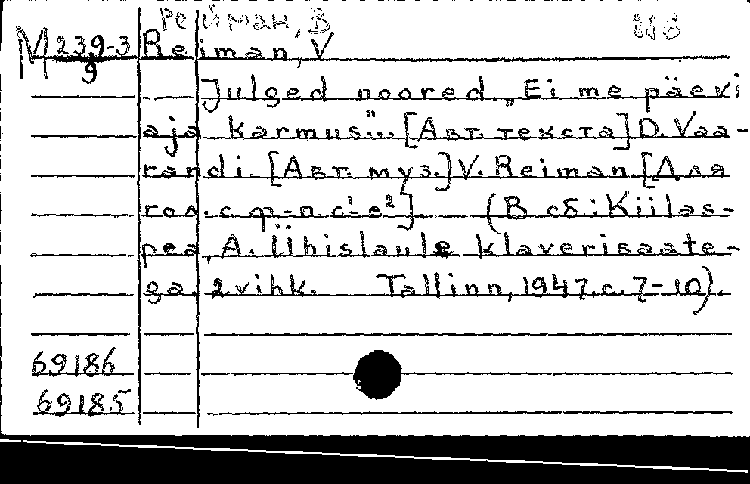 Рейман, В
М 239-3
9
Reiman, V
Julged noored. „Ei me päevi
aja karmus"... [Авт. текста] D. Vaa-
randi. [Авт. муз.] V. Reiman. [Для
гол. с ф-п. c¹-e²]. (В сб: Kiilas-
pea, A. Ühislaule klaverisaate-
ga. 2 vihk. Tallinn, 1947. с. 7-10).
69186
69185